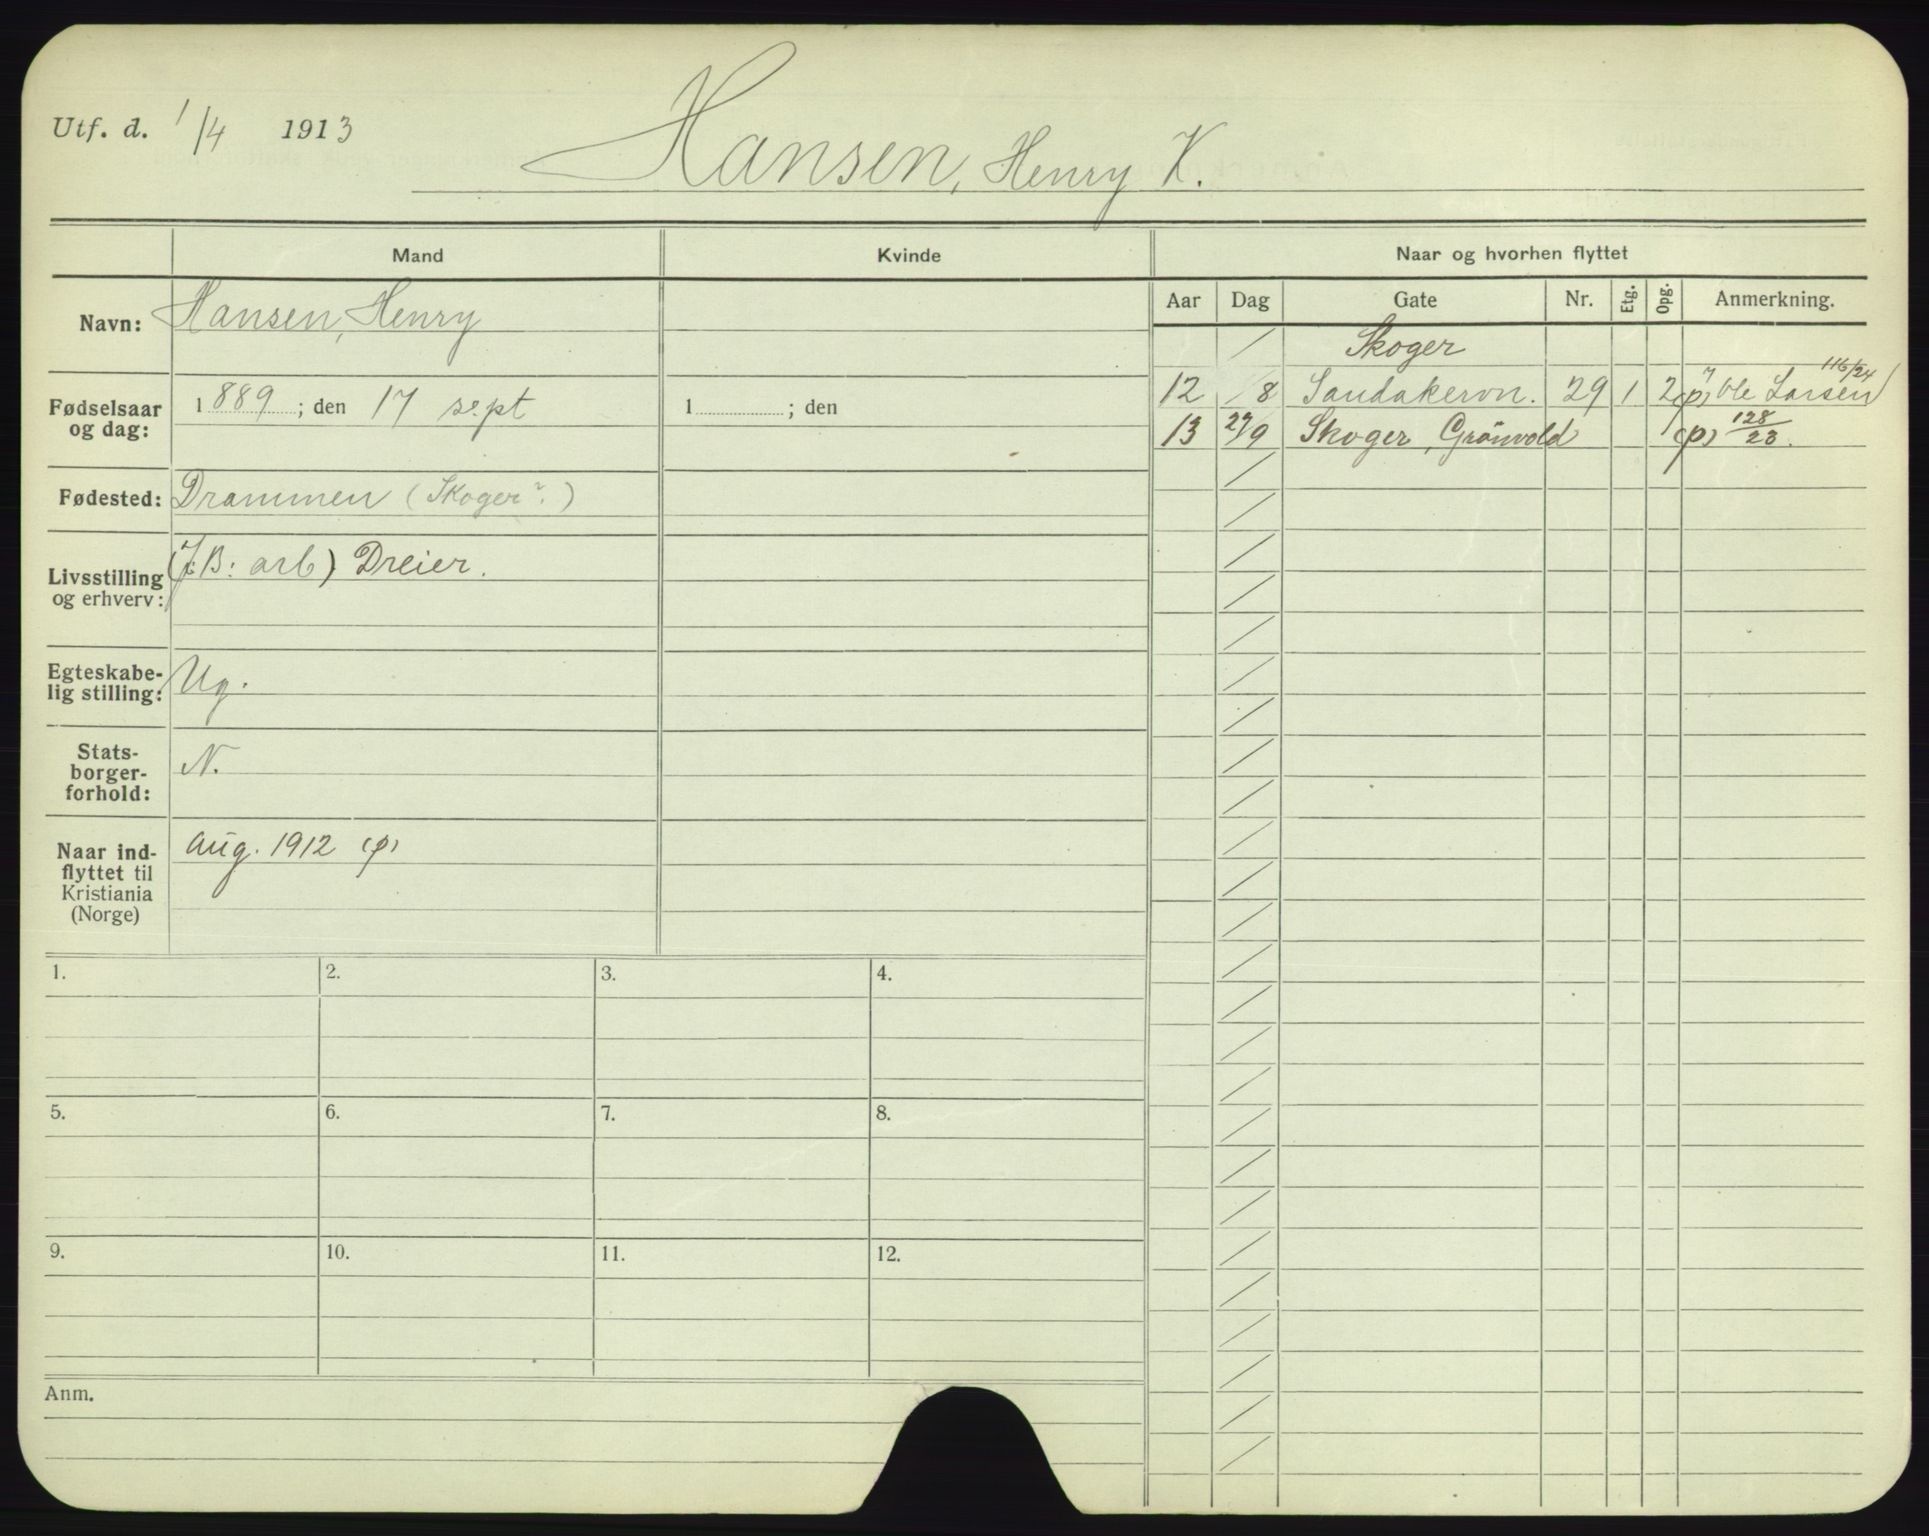 Utf. d. 1/4 1913
Hansen, Henry K.
Mand
Kvinde
Naar og hvorhen flyttet
Navn: Hansen, Henry
Fødselsaar og dag: 1889; den 17 sept
1 ; den
Fødested: Drammen (Skoger?)
Livsstilling og erhverv: (J:B: arb) Dreier.
Egteskabe-
lig stilling: Ug.
Stats-
borger-
forhold: N.
Naar ind-
flyttet til
Kristiania
(Norge)
Aug. 1912 (p)
Aar Dag Gate Nr. Etg. Opg. Anmerkning.
/ Skoger
116/24
12 /8 Sandakervn. 29 1 2 (p) Ole Larsen
13 27/9 Skoger, Grönvold (p) 128/23.
1. 2. 3. 4.
5. 6. 7. 8.
9. 10. 11. 12.
Anm.